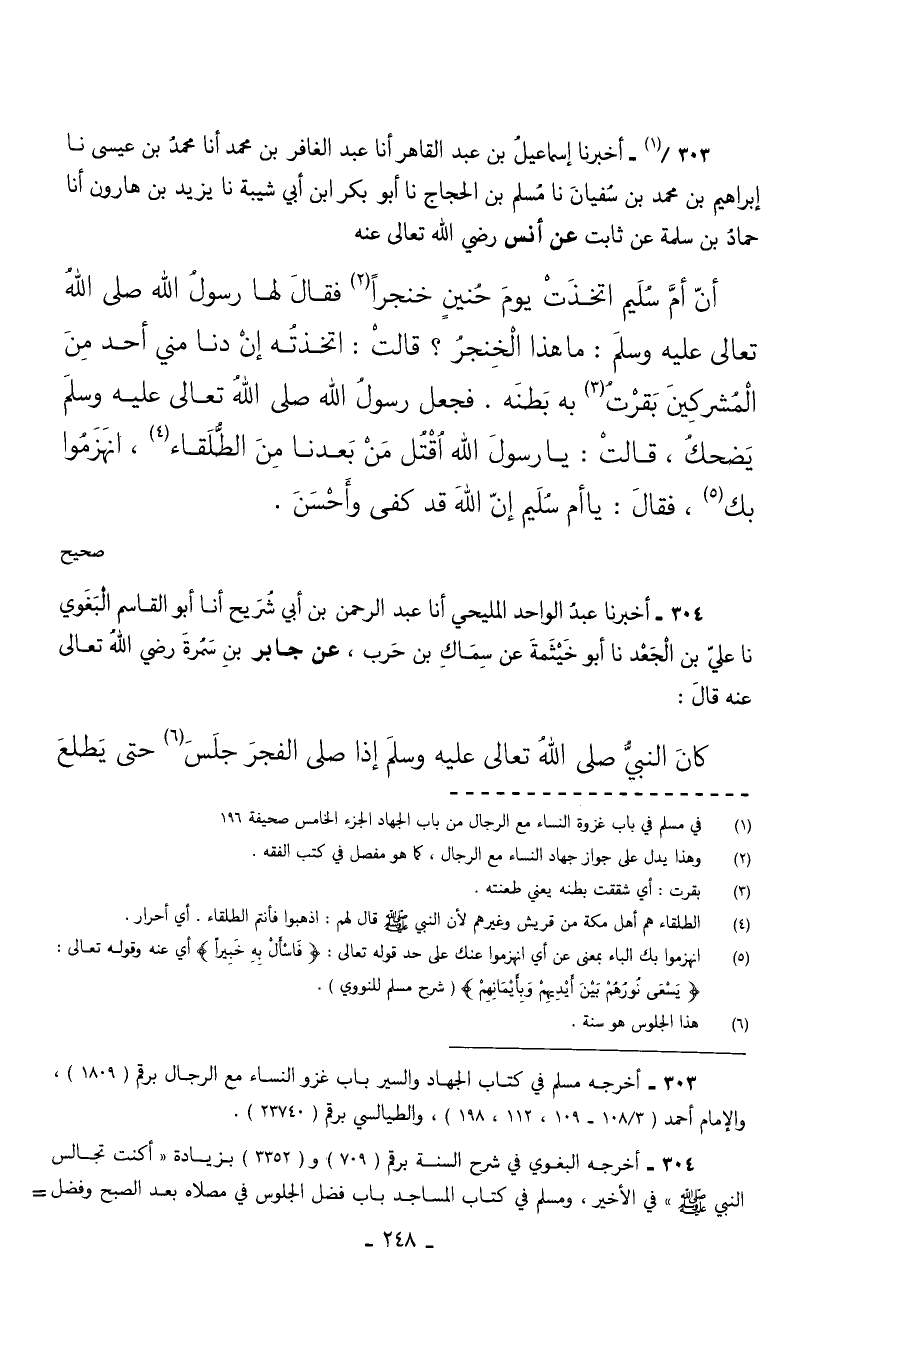 ٣٠٣ /(١) ـ أخبرنا إسماعيلُ بن عبد القاهر أنا عبد الغافر بن محمد أنا محمدُ بن عيسى نـا
إبراهيم بن محمد بن سُفيانَ نا مُسلم بن الحجاج نا أبو بكر ابن أبي شيبة نا يزيد بن هارون أنا
حمادُ بن سلمة عن ثابت عن أنس رضي الله تعالى عنه
أنّ أمَّ سُلَيم اتخذَتْ يومَ حُنينٍ خنجراً(٢) فقـالَ لهـا رسولُ الله صلى اللهُ
تعالى عليه وسلمَ : ما هذا الْخِنجرُ ؟ قالتْ : اتخـذتُـه إنْ دنـا مني أحـد مِنَ
الْمُشركينَ بَقرْتُ(٣) به بَطنَه . فجعل رسولُ الله صلى اللهُ تعـالى عليـه وسلمَ
يَضحكُ ، قـالتْ : يـا رسولَ الله أقْتُل مَنْ بَعـدنـا مِنَ الطُّلَقـاء(٤) ، انْهَزَمُوا
بك(٥) ، فقالَ : ياأم سُلَيم إنّ اللهَ قد كفى وأَحْسَنَ .
صحيح
٣٠٤ ـ أخبرنا عبدُ الواحد المليحي أنا عبد الرحمن بن أبي شُرَيح أنـا أبو القـاسم الْبَغَوي
نا عليّ بن الْجَعْد نا أبو خَيْثَمةَ عن سِمَاكِ بن حَرب ، عن جـابر بنِ سَمُرةَ رضي اللهُ تعـالى
عنه قالَ :
كانَ النبيُّ صلى اللهُ تعالى عليه وسلمَ إذا صلى الفجرَ جلَسَ(٦) حتى يَطلعَ
(١) في مسلم في باب غزوة النساء مع الرجال من باب الجهاد الجزء الخامس صحيفة ١٩٦
(٢) وهذا يدل على جواز جهاد النساء مع الرجال ، كما هو مفصل في كتب الفقه .
(٣) بقرت : أي شققت بطنه يعني طعنته .
(٤) الطلقاء هم أهل مكة من قريش وغيرهم لأن النبي ﷺ قال لهم : اذهبوا فأنتم الطلقاء . أي أحرار .
(٥) انهزموا بك الباء بمعنى عن أي انهزموا عنك على حد قوله تعالى : ﴿ فَاسْأَلْ بِهِ خَبِيراً ﴾ أي عنه وقولـه تعـالى :
﴿ يَسْعَى نُورُهُمْ بَيْنَ أَيْدِيهِمْ وَبِأَيْمَانِهِمْ ﴾ ( شرح مسلم للنووي ) .
(٦) هذا الجلوس هو سنة .
٣٠٣ ـ أخرجـه مسلم في كتـاب الجهـاد والسير بـاب غزو النسـاء مع الرجـال برقم ( ١٨٠٩ ) ،
والإمام أحمد ( ١٠٨/٣ ـ ١٠٩ ، ١١٢ ، ١٩٨ ) ، والطيالسي برقم ( ٢٣٧٤٠ ) .
٣٠٤ ـ أخرجـه البغوي في شرح السنـة برقم ( ٧٠٩ ) و ( ٣٣٥٢ ) بـزيـادة « أكنت تجـالس
النبي ﷺ » في الأخير ، ومسلم في كتـاب المسـاجـد بـاب فضل الجلوس في مصلاه بعـد الصبح وفضل =
ـ ٢٤٨ ـ